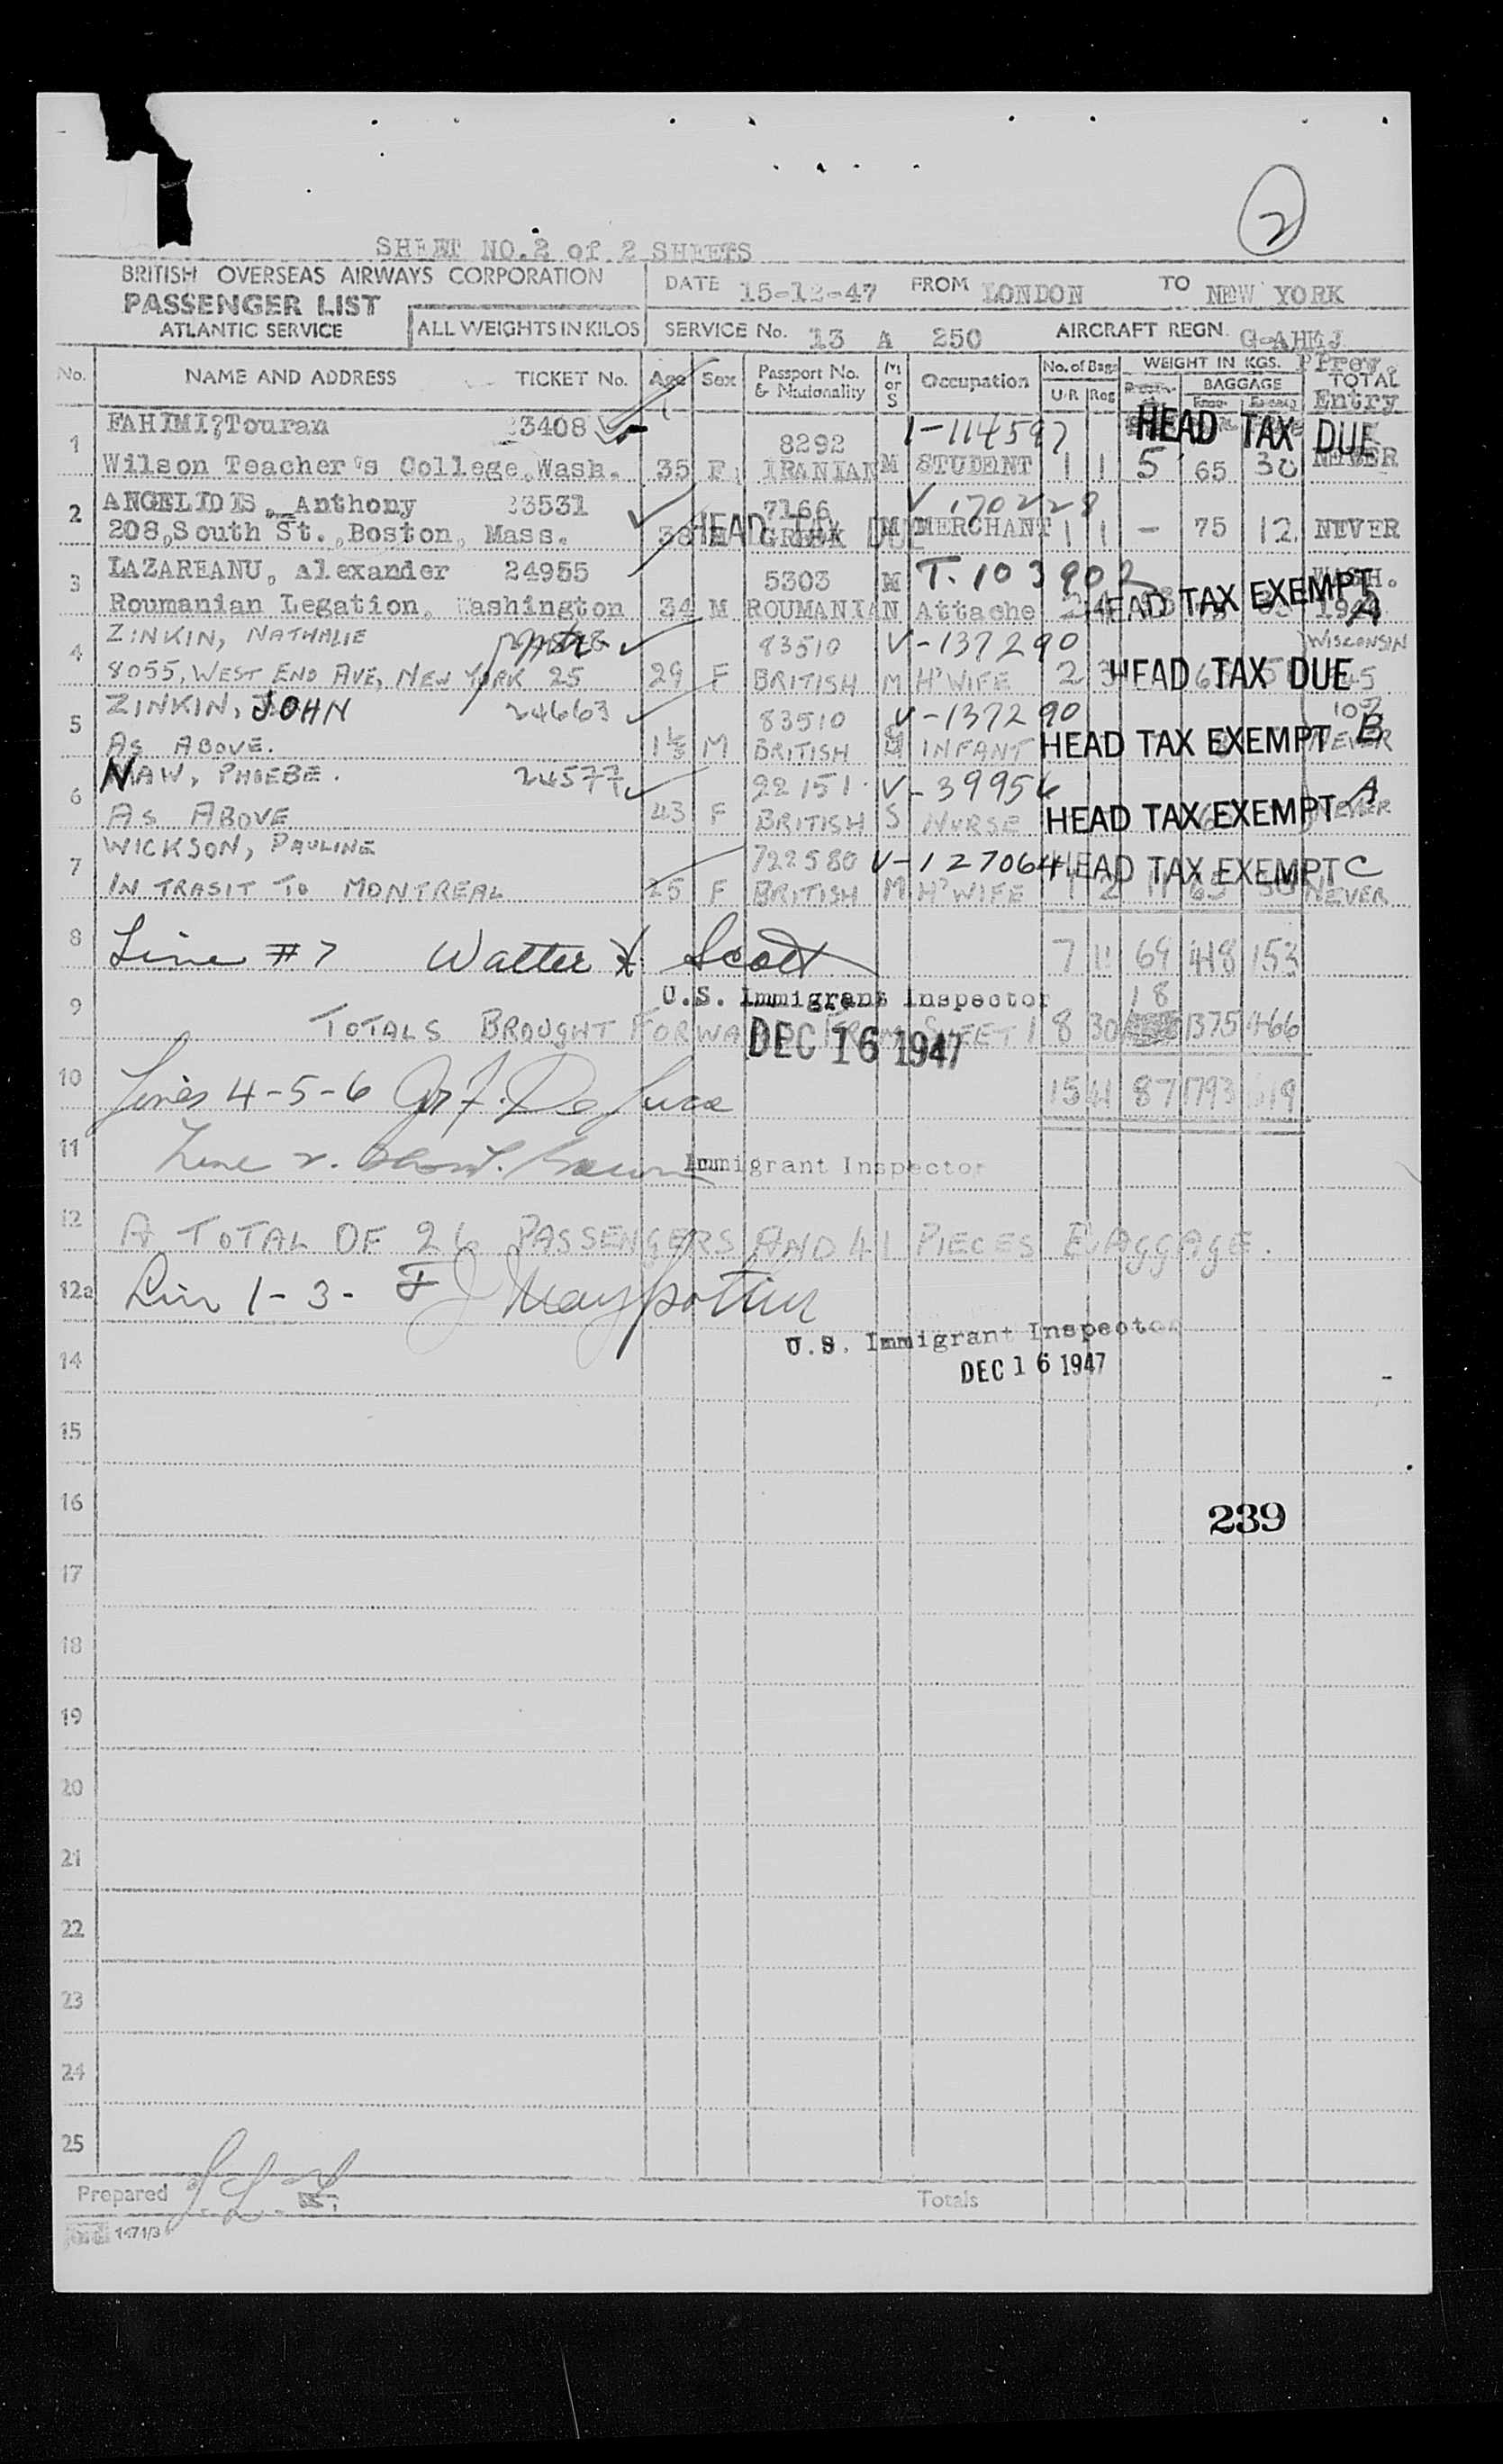 2
SHEET NO.2 of 2 SHEETS
BRITISH OVERSEAS AIRWAYS CORPORATION
PASSENGER LIST
ATLANTIC SERVICE
ALL WEIGHTS IN KILOS
DATE 15-12-47 FROM LONDON TO NEW YORK
SERVICE No. 13 A 250 AIRCRAFT REGN. G-AHEJ
No. NAME AND ADDRESS TICKET No. Age Sex Passport No. & Nationality M or S Occupation No. of Bags U/R Reg WEIGHT IN KGS. BAGGAGE Prev. TOTAL Entry
1 FAHIMI?Touran 3408 8292 1-114597 HEAD TAX DUE
Wilson Teacher's College,Wash. 35 F IRANIAN M STUDENT 1 1 5 65 30 NEVER
2 ANGELIDIS, Anthony 3531 7166 V 170228
208,South St.,Boston, Mass. 38 M GREEK M MERCHANT 1 1 - 75 12 NEVER
HEAD TAX DUE
3 LAZAREANU, Alexander 24955 5303 M T.103902 WASH.
Roumanian Legation, Washington 34 M ROUMANIAN Attache HEAD TAX EXEMPT A
4 ZINKIN, NATHALIE 83510 V-137290 WISCONSIN
8055, WEST END AVE, NEW YORK 25 29 F BRITISH M H'WIFE 2 3 HEAD TAX DUE
5 ZINKIN, JOHN 24663 83510 V-137290
AS ABOVE. M BRITISH S INFANT HEAD TAX EXEMPT B NEVER
6 NAW, PHOEBE. 24577 22151 V-39956
AS ABOVE 43 F BRITISH S NURSE HEAD TAX EXEMPT A NEVER
7 WICKSON, PAULINE 722580 V-127064 HEAD TAX EXEMPT C
IN TRASIT TO MONTREAL 25 F BRITISH M H'WIFE 1 2 11 65 30 NEVER
8 Line #7 Walter Scott 7 11 69 418 153
U.S. Immigrant Inspector
18
9 TOTALS BROUGHT FORWARD FROM SHEET 1 8 30 1375 466
DEC 16 1947
10 Lines 4-5-6 De Luca 15 41 87 1793 619
11 Line 2. Immigrant Inspector
12 A TOTAL OF 26 PASSENGERS AND 41 PIECES BAGGAGE.
12a Line 1-3-
U.S. Immigrant Inspector
14 DEC 16 1947
15
16 239
17
18
19
20
21
22
23
24
25
Prepared Totals
1471/3